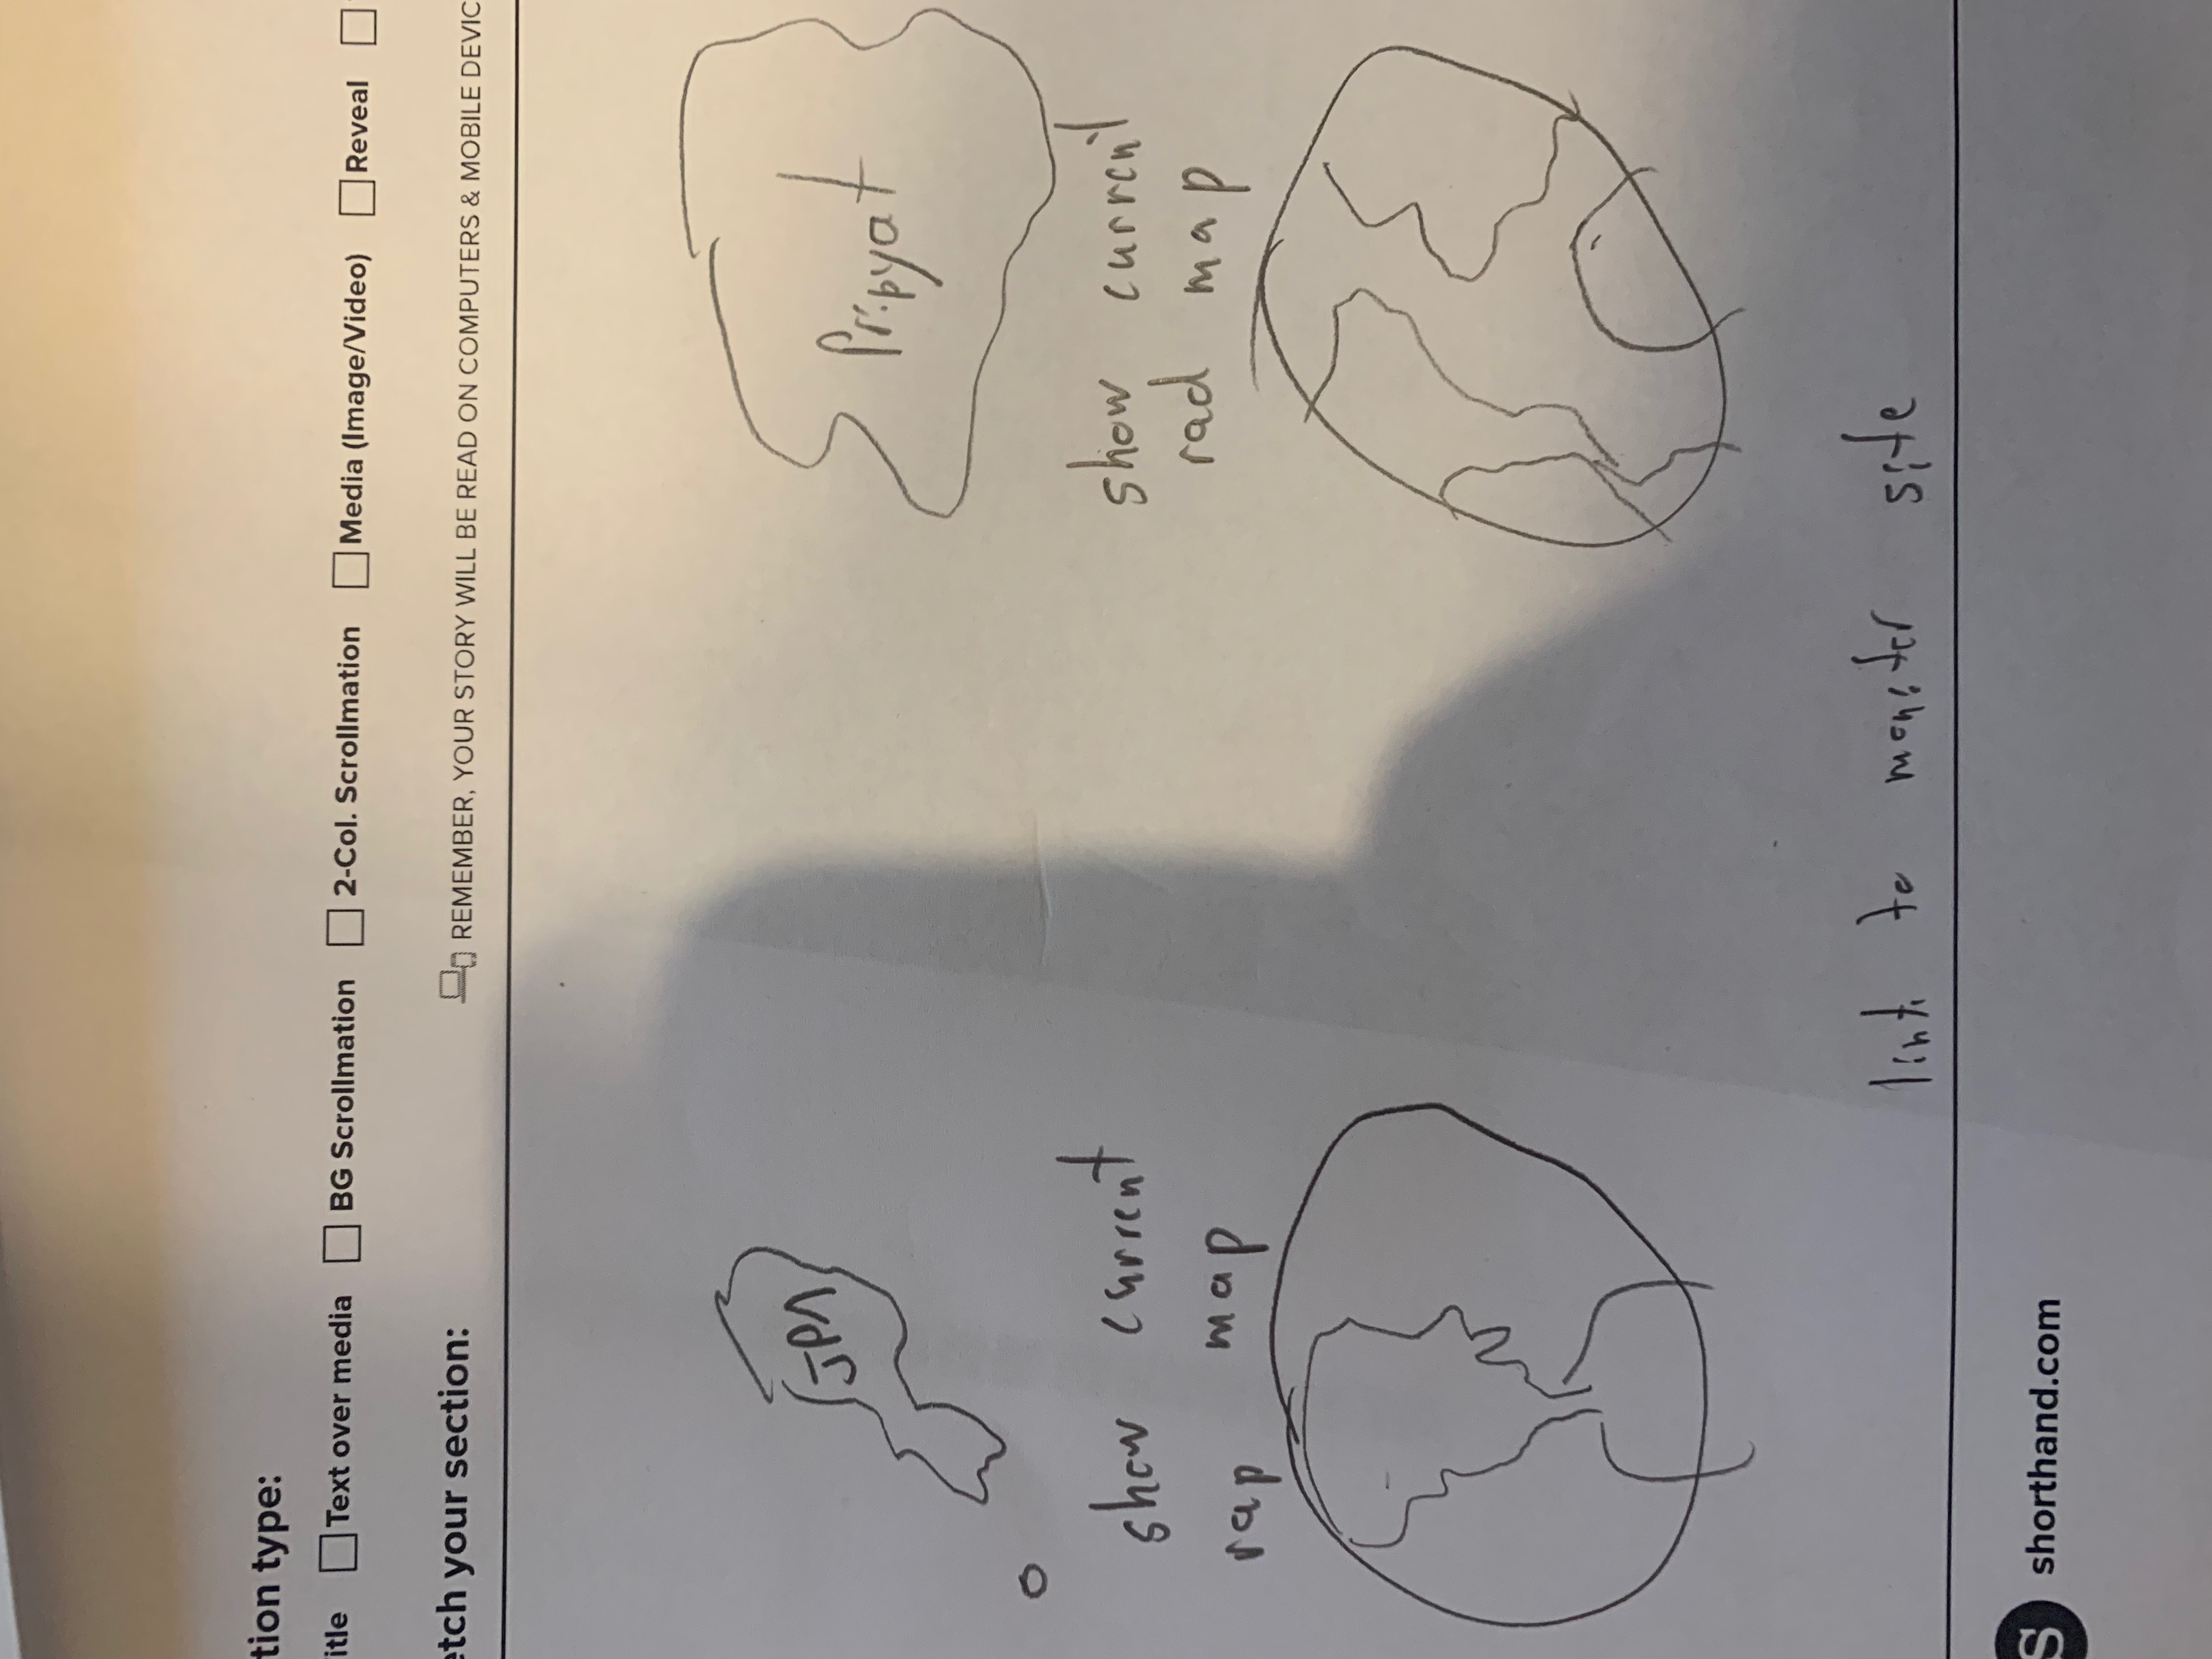 tion type:
itle Text over media BG Scrollmation 2-Col. Scrollmation Media (Image/Video) Reveal
etch your section: REMEMBER, YOUR STORY WILL BE READ ON COMPUTERS & MOBILE DEVIC
JPN Pripyat
show current
rap map
show current
rad map
link to monitor site
S shorthand.com